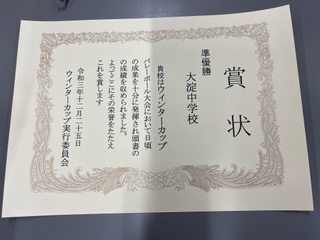 賞状
準優勝
大淀中学校
貴校はウィンターカップ
バレーボール大会において日頃
の成果を十分に発揮され頭書の
の成績を収められました。
よってここにその栄誉をたたえ
これを賞します
令和三年十二月二十五日
ウィンターカップ実行委員会